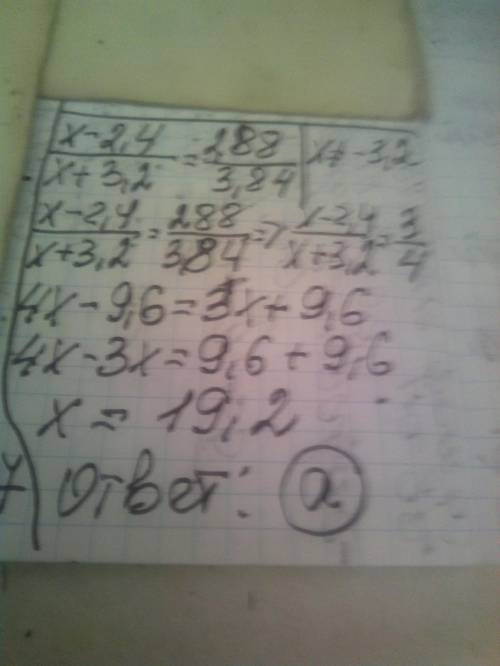 x-2,4/x+3,2 = 2,88/3,84 | x≠-3,2
x-2,4/x+3,2 = 288/384 => x-2,4/x+3,2 = 3/4
4x-9,6=3x+9,6
4x-3x=9,6+9,6
x=19,2
Ответ: а